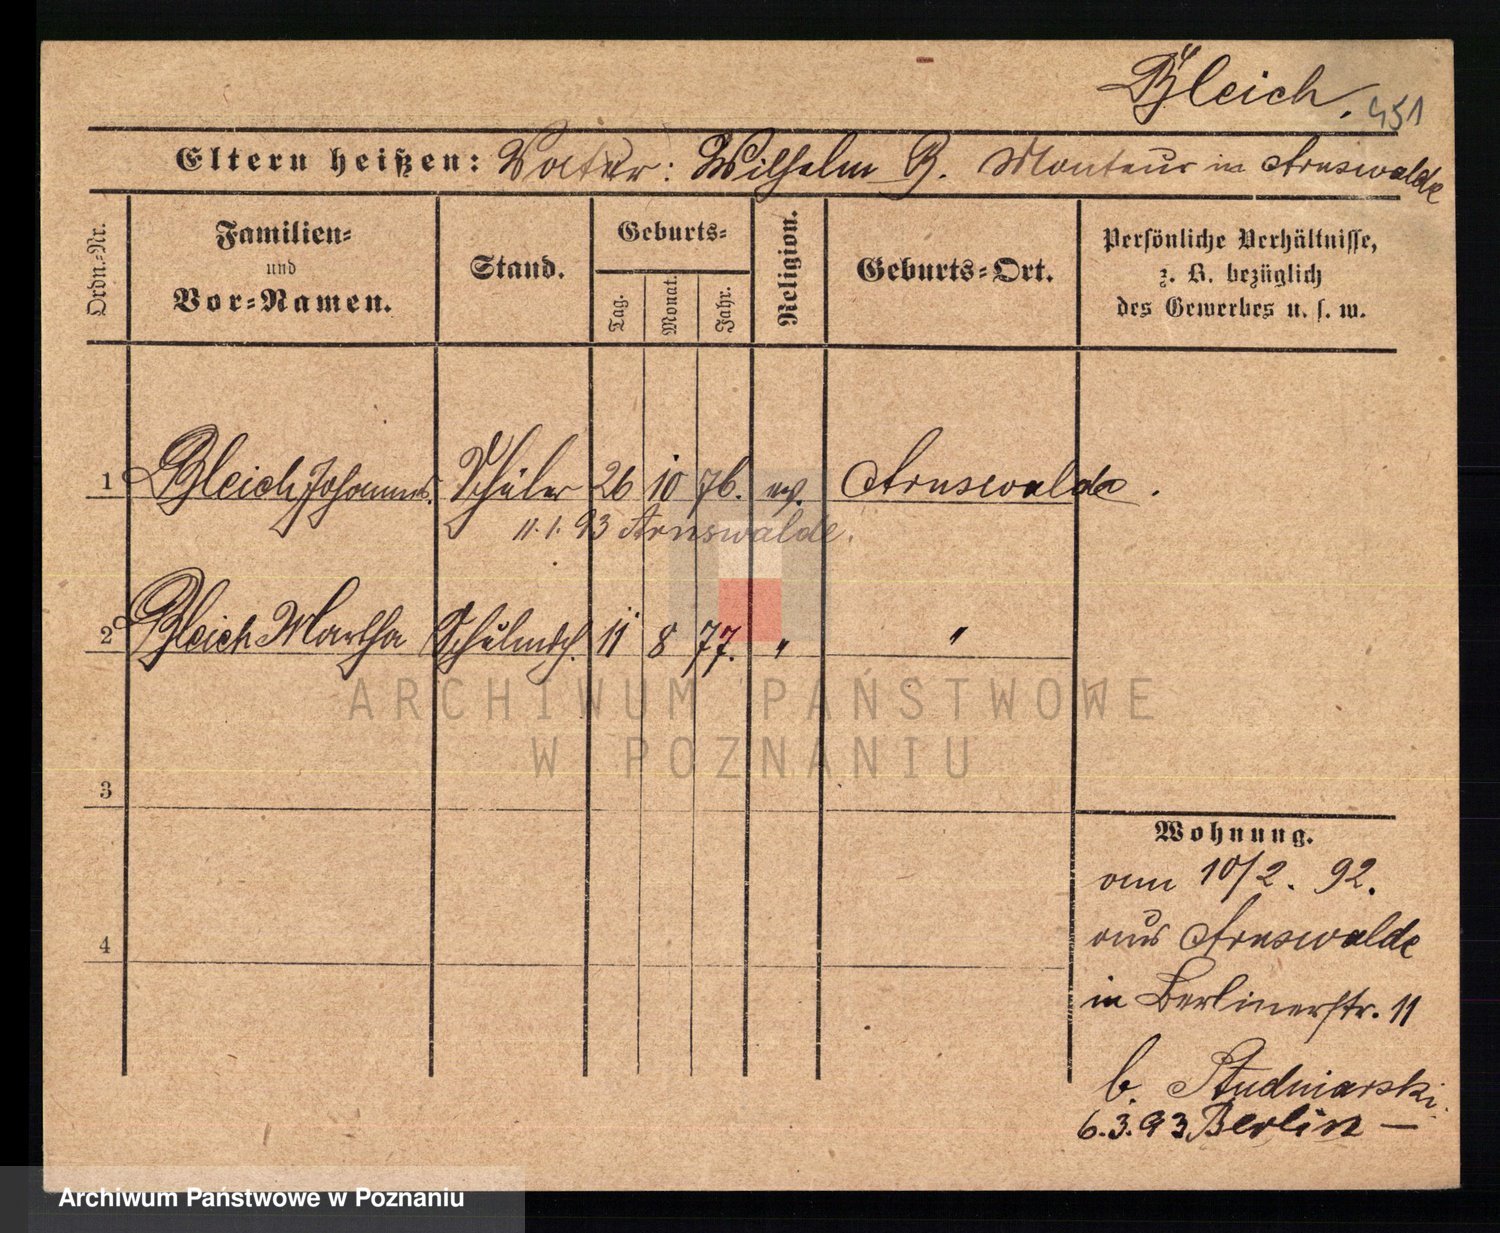 Bleich. 451
Eltern heißen: Vater: Wilhelm B. Monteur in Arnswalde
Ordn.-Nr.
Familien-
und
Vor-Namen.
Stand.
Geburts-
Tag. Monat. Jahr.
Religion.
Geburts-Ort.
Persönliche Verhältnisse,
z. B. bezüglich
des Gewerbes u. s. w.
1 Bleich Johannes. Schüler 26 10 76. ev. Arnswalde.
11.1.93 Arnswalde.
2 Bleich Martha Schulmdch. 11 8 77. " "
ARCHIWUM PAŃSTWOWE
W POZNANIU
3
4
Wohnung.
vom 10/2. 92.
aus Arnswalde
in Berlinerstr. 11
b. Studniarski.
6.3.93 Berlin —
Archiwum Państwowe w Poznaniu